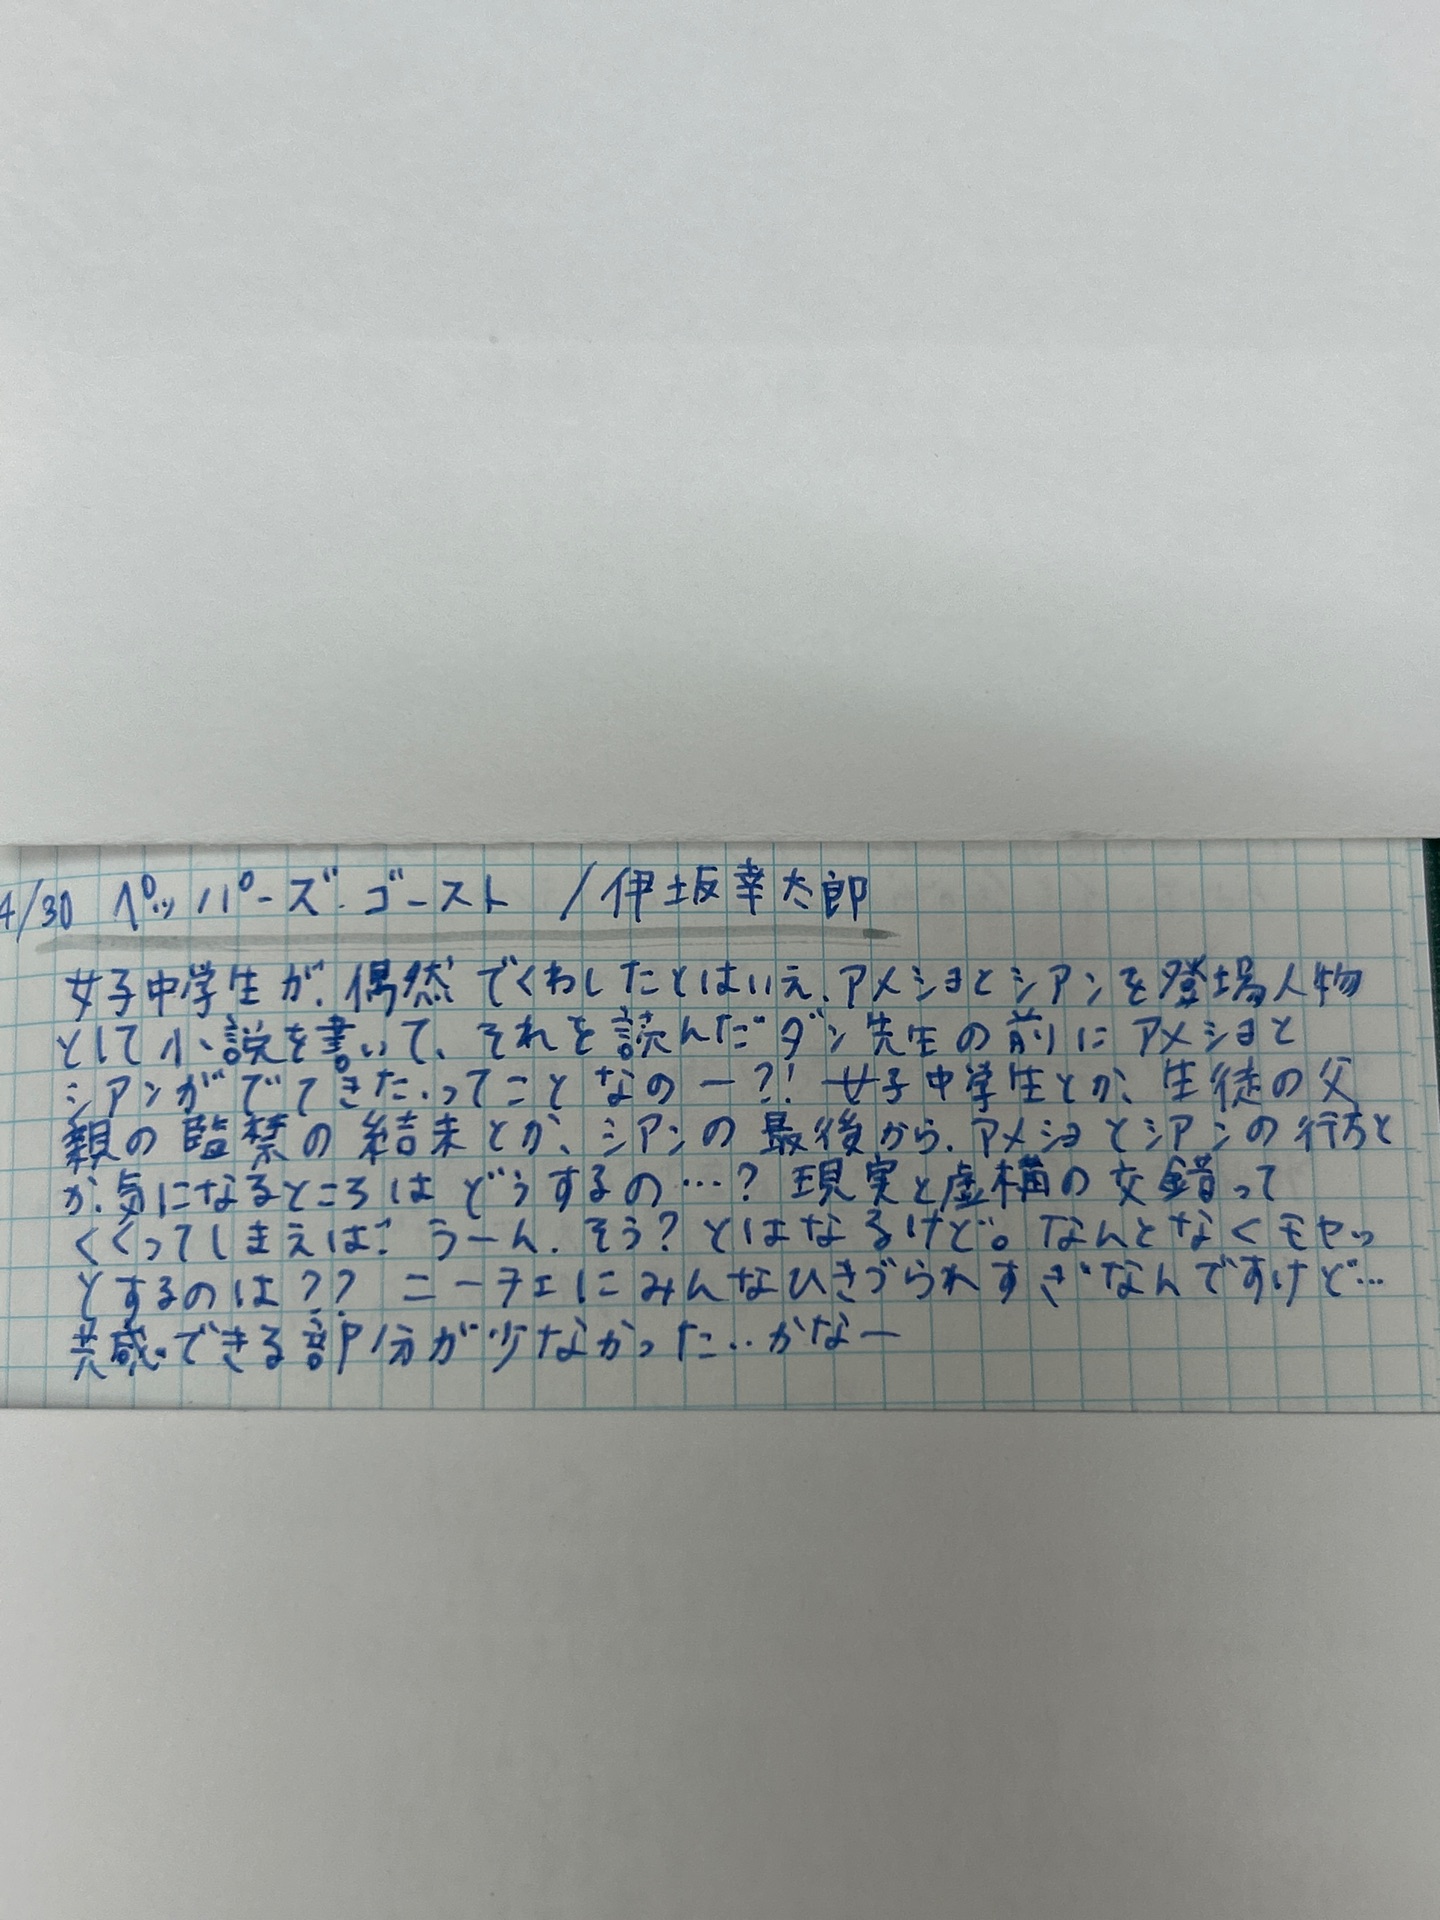 4/30 ペッパーズ・ゴースト /伊坂幸太郎
女子中学生が、偶然でくわしたとはいえ、アメショとシアンを登場人物
として小説を書いて、それを読んだダン先生の前にアメショと
シアンがでてきた、ってことなのー?! 女子中学生とか、生徒の父
親の監禁の結末とか、シアンの最後から、アメショとシアンの行方と
か、気になるところはどうするの…? 現実と虚構の交錯って
くくってしまえば、うーん、そう?とはなるけど。なんとなくモヤっ
とするのは?? ニーチェにみんなひきづられすぎなんですけど…
共感できる部分が少なかった…かなー